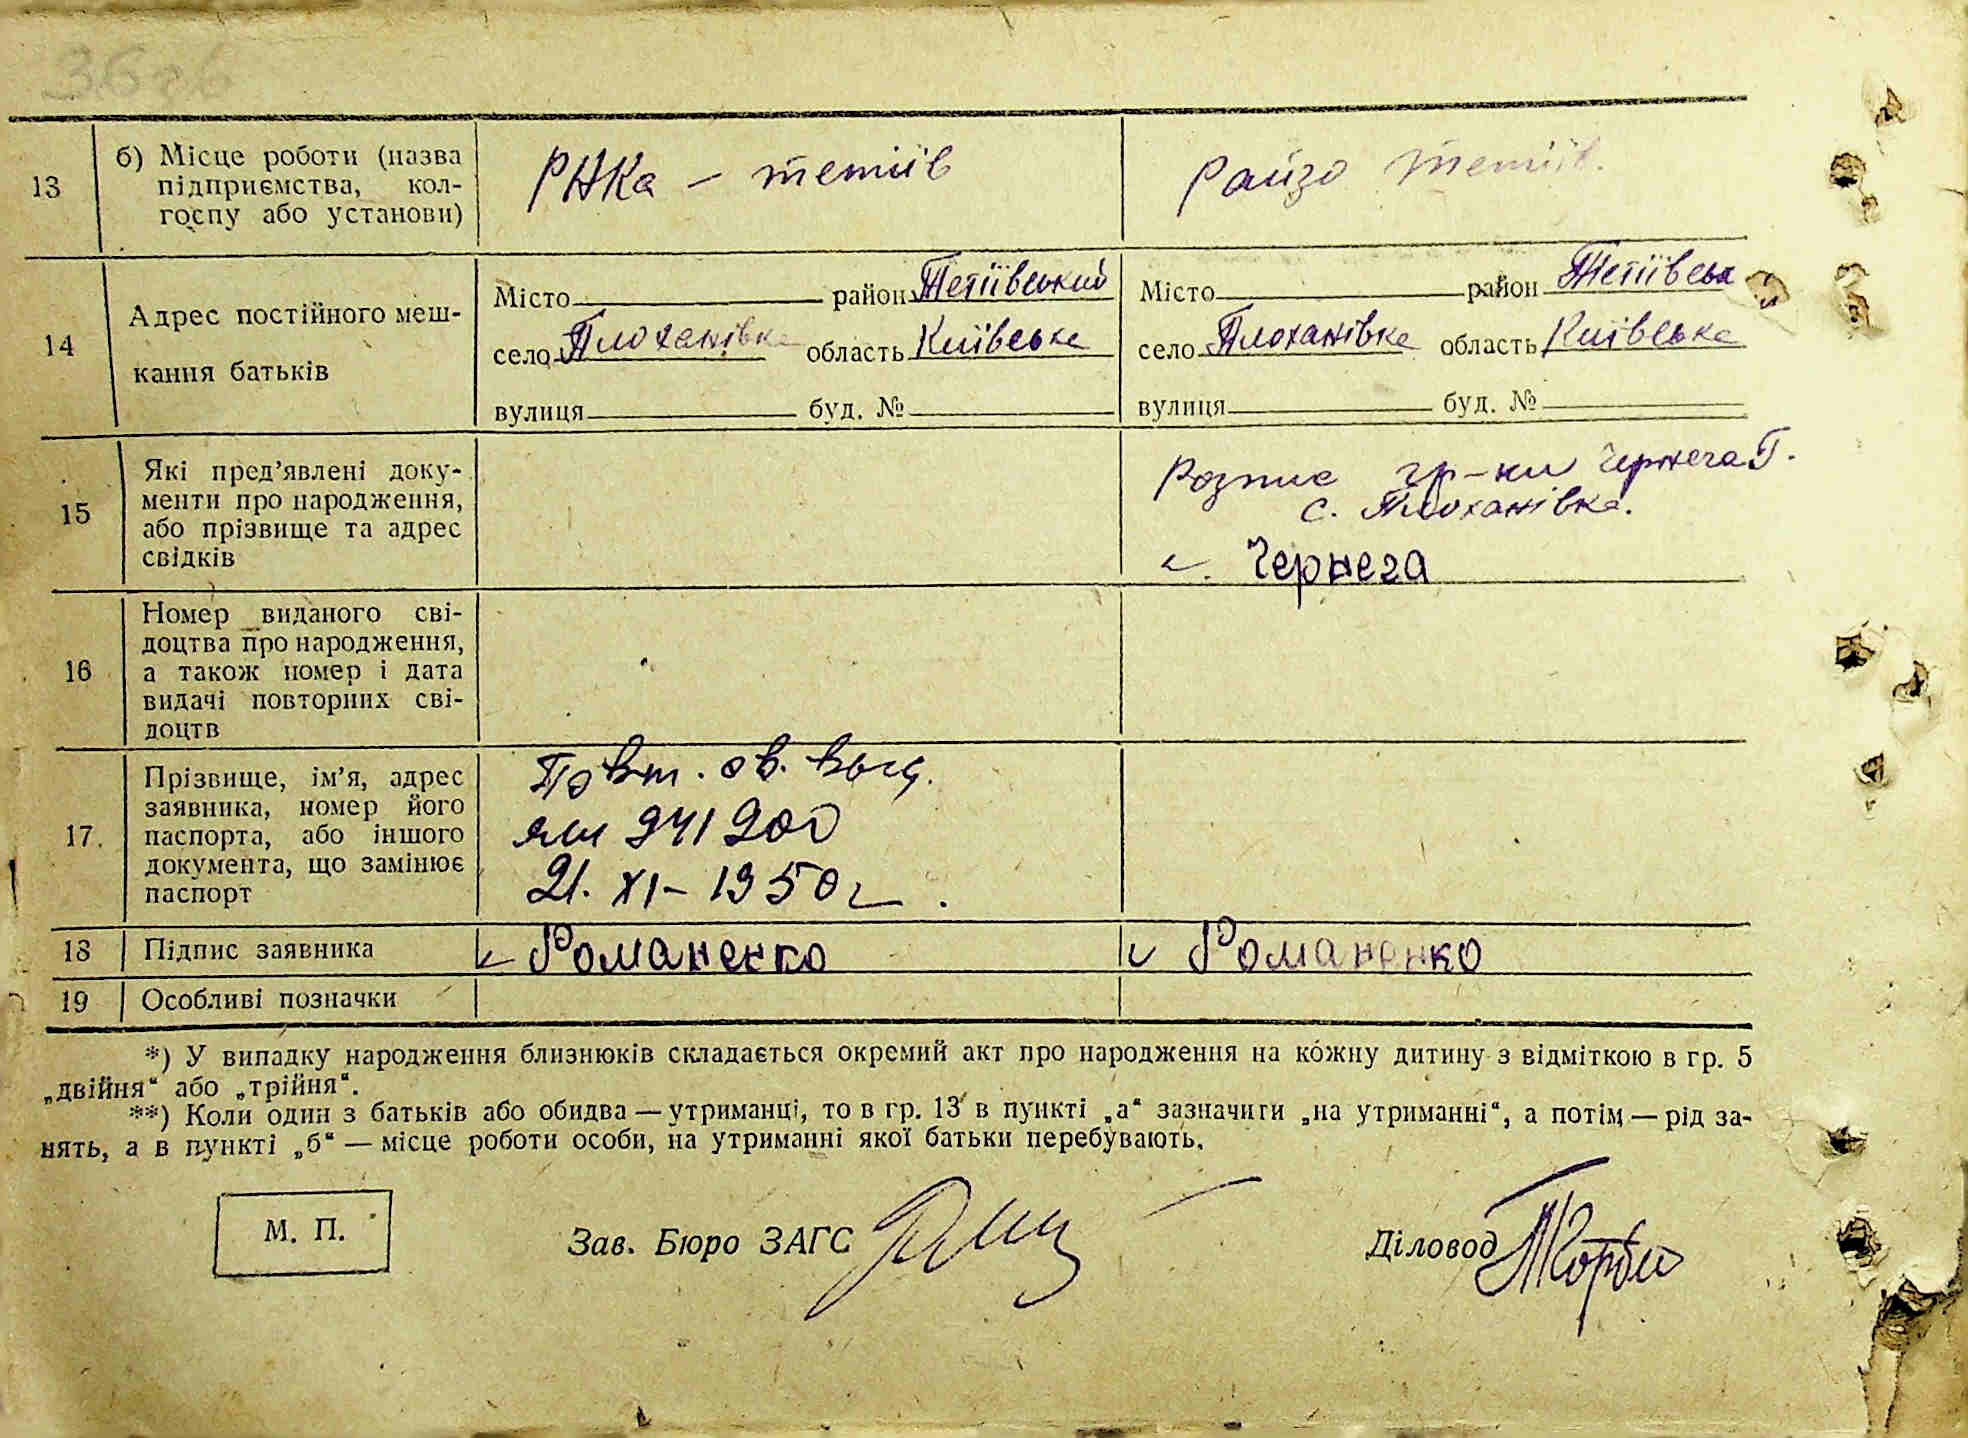 36
13 б) Місце роботи (назва підприємства, колгоспу або установи)
РНКа – тетіїв
Райзо Тетіїв.
14 Адрес постійного мешкання батьків
Місто район Тетіївський
село Плоханівка область Київська
вулиця буд. №
Місто район Тетіївськ
село Плоханівка область Київська
вулиця буд. №
15 Які пред’явлені документи про народження, або прізвище та адрес свідків
Розпис гр-ки Чернега Г.
с. Плоханівка.
Чернега
16 Номер виданого свідоцтва про народження, а також номер і дата видачі повторних свідоцтв
17. Прізвище, ім’я, адрес заявника, номер його паспорта, або іншого документа, що замінює паспорт
Повт. св. выд.
941200
21. XI – 1950 г.
18 Підпис заявника
Романенко
Романенко
19 Особливі позначки
*) У випадку народження близнюків складається окремий акт про народження на кожну дитину з відміткою в гр. 5
„двійня“ або „трійня“.
**) Коли один з батьків або обидва — утриманці, то в гр. 13 в пункті „а“ зазначити „на утриманні“, а потім — рід за-
нять, а в пункті „б“ — місце роботи особи, на утриманні якої батьки перебувають.
М. П.
Зав. Бюро ЗАГС
Діловод